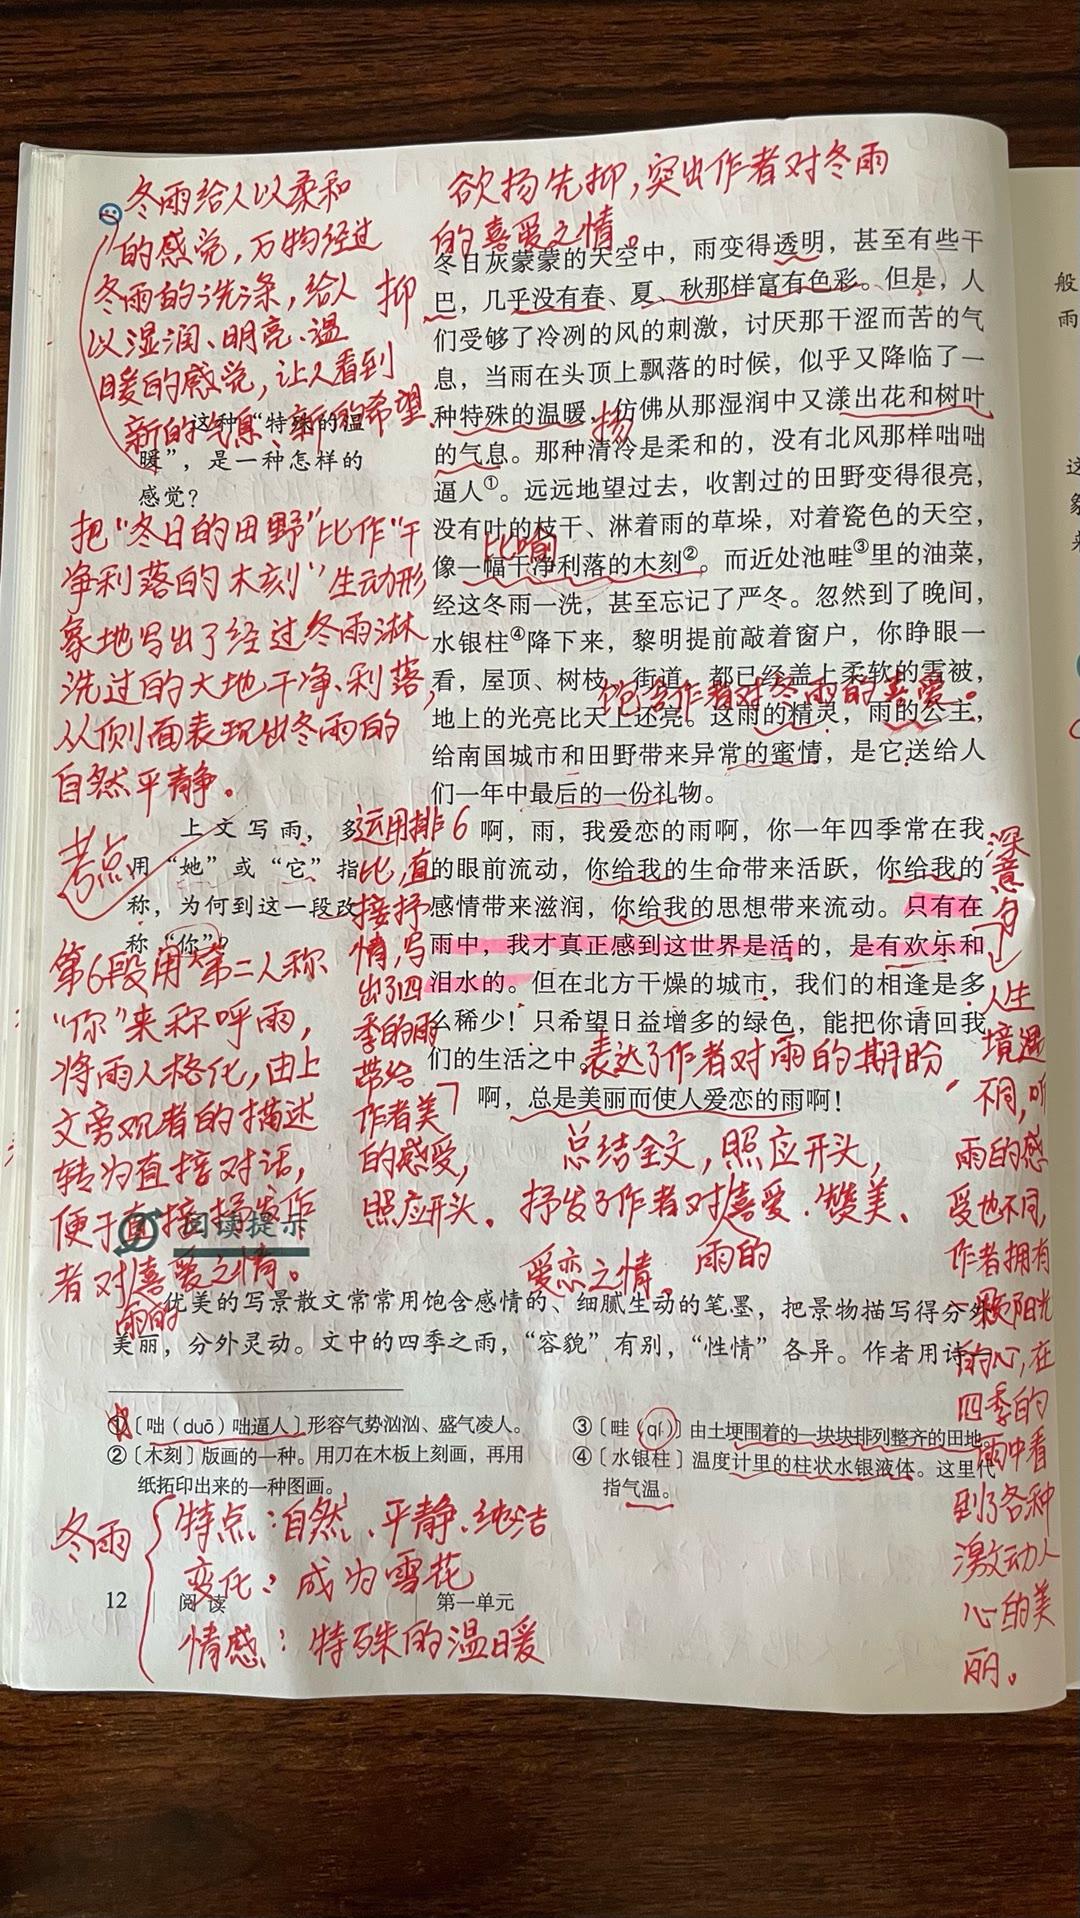 欲扬先抑，突出作者对冬雨
的喜爱之情。
冬雨给人以柔和
的感觉，万物经过
冬雨的洗涤，给人
以湿润、明亮、温
暖的感觉，让人看到
新的气息、新的希望。
抑
扬
比喻
冬日灰蒙蒙的天空中，雨变得透明，甚至有些干
巴，几乎没有春、夏、秋那样富有色彩。但是，人
们受够了冷冽的风的刺激，讨厌那干涩而苦的气
息，当雨在头顶上飘落的时候，似乎又降临了一
种特殊的温暖，仿佛从那湿润中又漾出花和树叶
的气息。那种清冷是柔和的，没有北风那样咄咄
逼人①。远远地望过去，收割过的田野变得很亮，
没有叶的枝干、淋着雨的草垛，对着瓷色的天空，
像一幅干净利落的木刻②。而近处池畦③里的油菜，
经这冬雨一洗，甚至忘记了严冬。忽然到了晚间，
水银柱④降下来，黎明提前敲着窗户，你睁眼一
看，屋顶、树枝、街道，都已经盖上柔软的雪被，
地上的光亮比天上还亮。这雨的精灵，雨的公主，
给南国城市和田野带来异常的蜜情，是它送给人
们一年中最后的一份礼物。
饱含作者对冬雨的喜爱。
这种“特殊的温
暖”，是一种怎样的
感觉？
把“冬日的田野”比作“干
净利落的木刻”生动形
象地写出了经过冬雨淋
洗过的大地干净、利落，
从侧面表现出冬雨的
自然平静。
上文写雨，多
用“她”或“它”指
称，为何到这一段改
称“你”？
考点
第6段用第二人称
“你”来称呼雨，
将雨人格化，由上
文旁观者的描述
转为直接对话，
便于直接抒发作
者对雨的喜爱之情。
运用排
比，直
接抒
情，写
出了四
季的雨
带给
作者美
的感受，
照应开头。
6 啊，雨，我爱恋的雨啊，你一年四季常在我
的眼前流动，你给我的生命带来活跃，你给我的
感情带来滋润，你给我的思想带来流动。只有在
雨中，我才真正感到这世界是活的，是有欢乐和
泪水的。但在北方干燥的城市，我们的相逢是多
么稀少！只希望日益增多的绿色，能把你请回我
们的生活之中。
表达了作者对雨的期盼
7 啊，总是美丽而使人爱恋的雨啊！
总结全文，照应开头，
抒发了作者对雨的喜爱、赞美、
爱恋之情。
深
意
句
人生
境遇
不同，听
雨的感
受也不同，
作者拥有
一颗阳光
的心，在
四季的
雨中看
到了各种
激动人
心的美
丽。
阅读提示
优美的写景散文常常用饱含感情的、细腻生动的笔墨，把景物描写得分外
美丽，分外灵动。文中的四季之雨，“容貌”有别，“性情”各异。作者用诗一
①〔咄（duō）咄逼人〕形容气势汹汹、盛气凌人。
②〔木刻〕版画的一种。用刀在木板上刻画，再用
纸拓印出来的一种图画。
③〔畦（qí）〕由土埂围着的一块块排列整齐的田地。
④〔水银柱〕温度计里的柱状水银液体。这里代
指气温。
冬雨
特点：自然、平静、纯洁
变化：成为雪花
情感：特殊的温暖
12 阅读 第一单元
般
雨
这